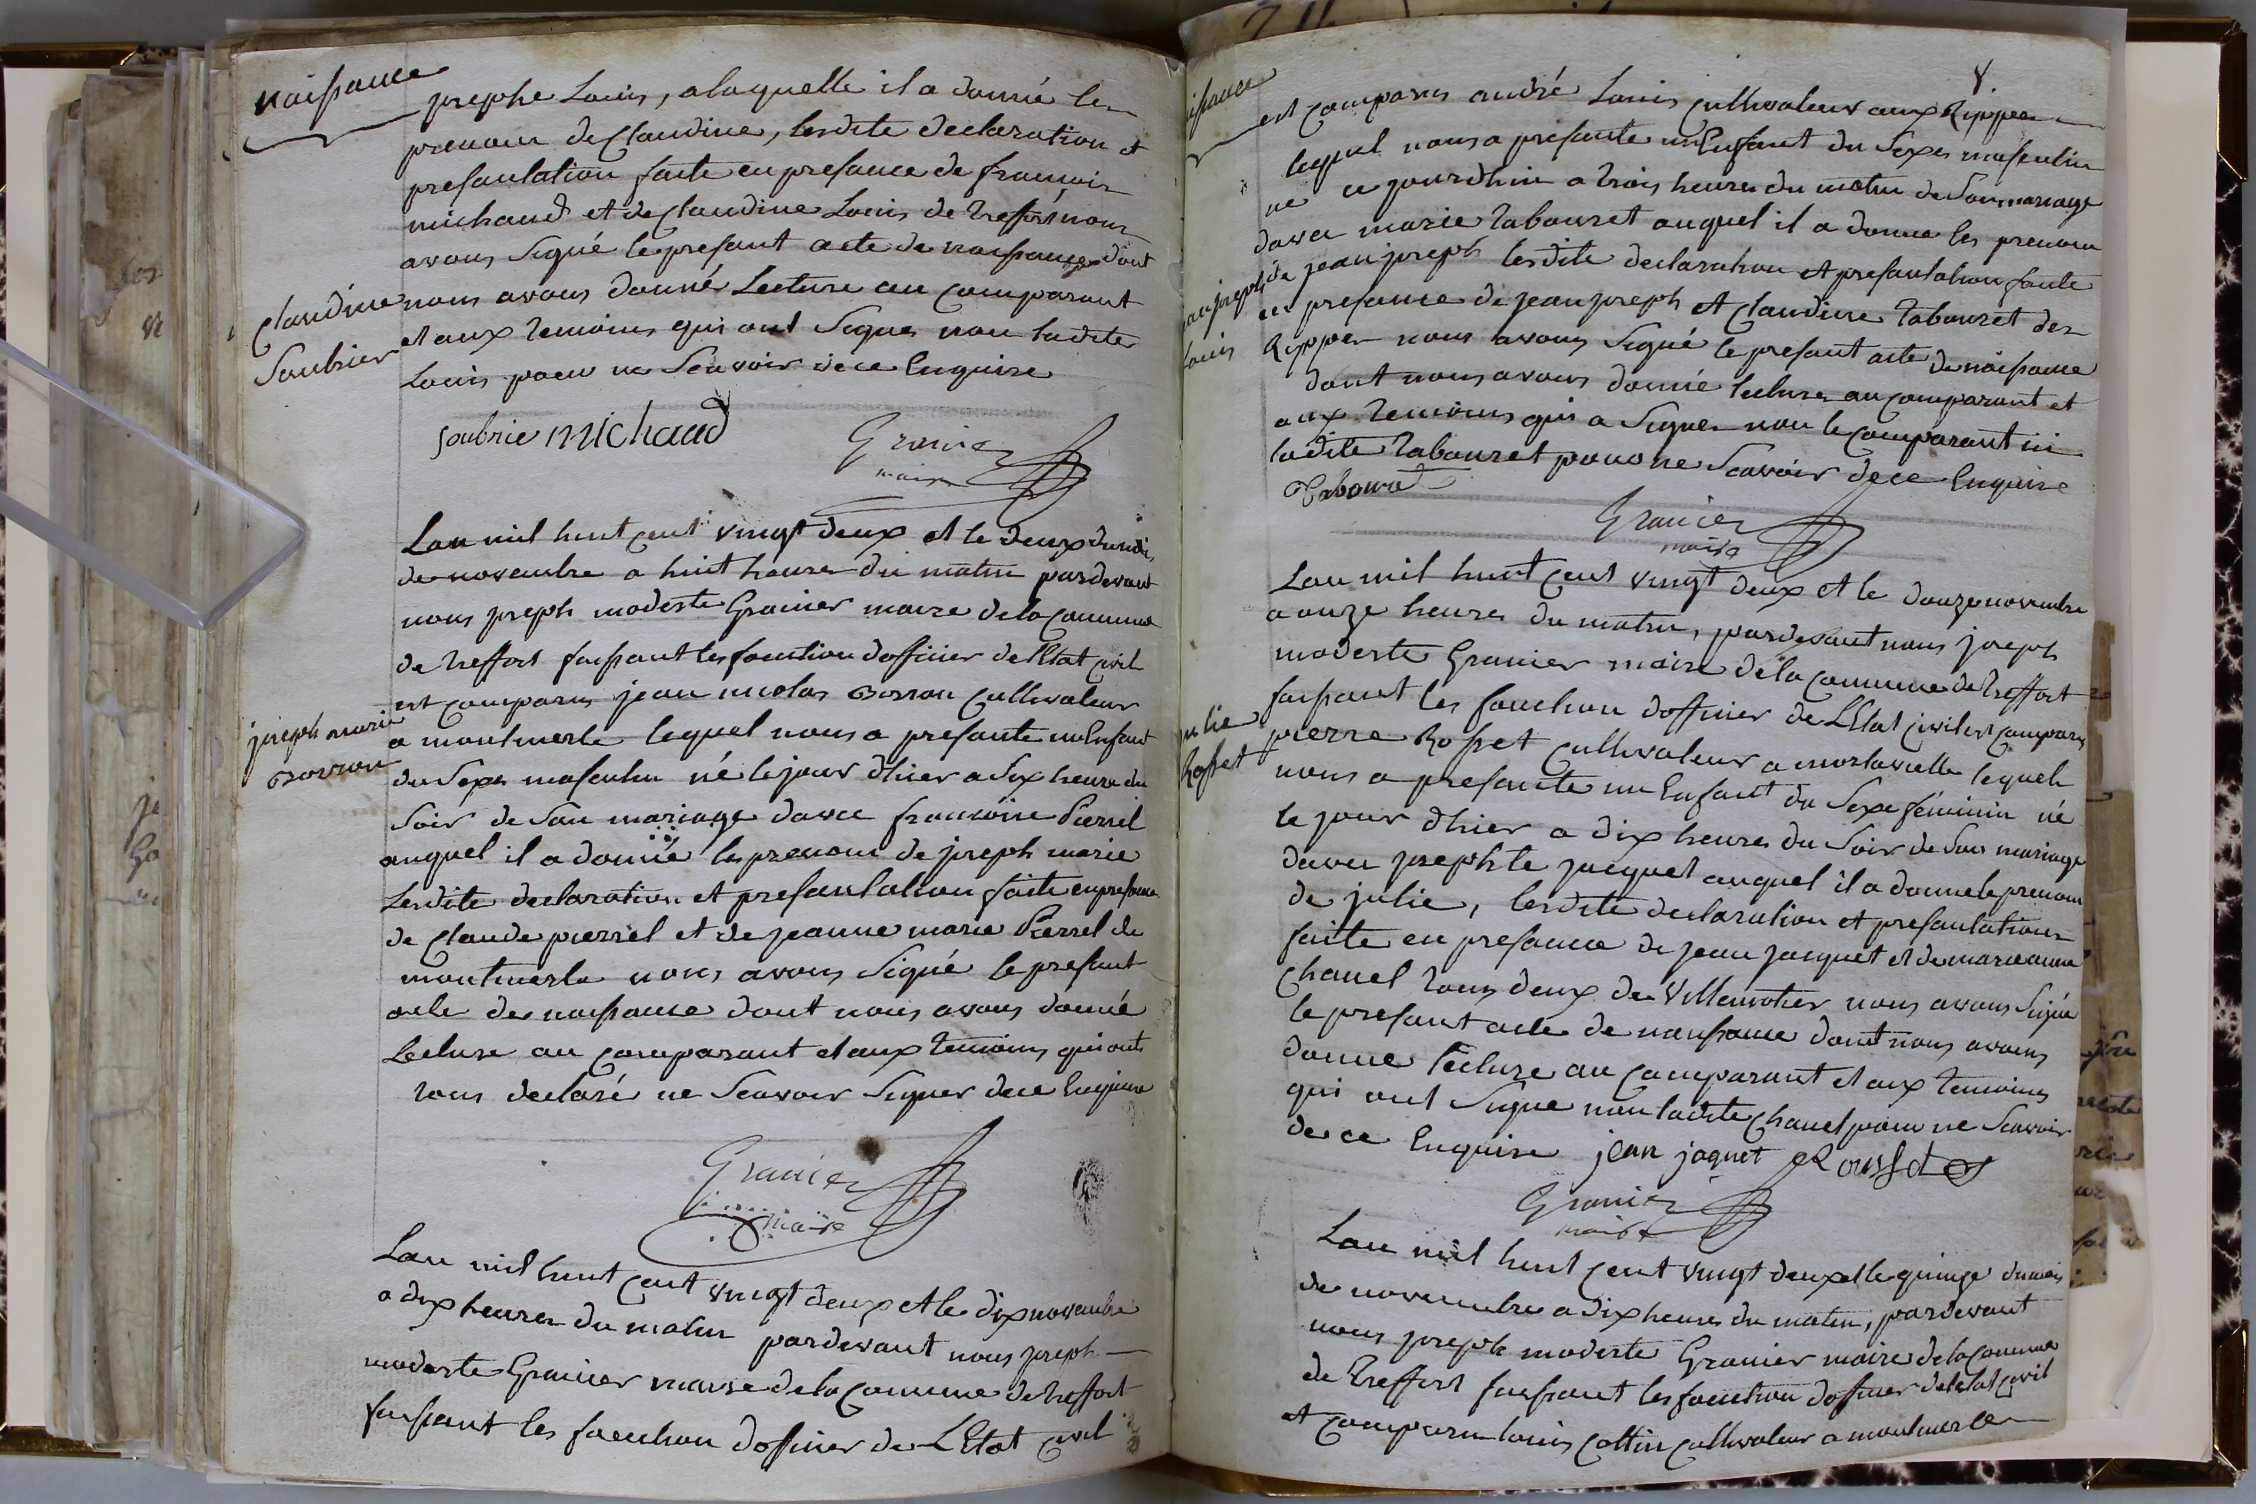 naissance
josephe Louis, a laquelle il a donné le
prenom de Claudine, lesdite declaration et
presantation faite en presance de francois
michaud et de Claudine Louis de treffort nous
avons signé le presant acte de naissance dont
Claudine
Soubrier
nous avons donné Lecture au Comparant
et aux temoins qui ont signés non ladite
Louis pour ne Scavoir de ce Enquise
soubrie michaud
Granier
maire
Lan mil huit cent vingt deux et le deux du moi
de novembre a huit heures du matin pardevant
nous joseph modeste Granier maire de la Commune
de treffort faissant les fonction dofficier de lEtat civil
est comparus jean nicolas Borron Cultivateur
joseph marie
Borron
a montmerle lequel nous a presante un Enfant
du Sexe masculin né le jour dhier a Six heure du
Soir de Son mariage davec francoise Pierrel
auquel il a donné les prenom de joseph marie
Lesdite declaration et presantation faite en presance
de Claude pierrel et de jeanne marie Pierrel de
montmerle nous avons Signé le presant
acte de naissance dont nous avons donné
Lecture au Comparant et aux temoins qui ont
tous declaré ne Scavoir Signer de ce Enquise
Granier
maire
Lan mil huit cent vingt deux et le dix novembre
a dix heures du matin pardevant nous joseph
modeste Granier maire de la Commune de treffort
faissant les fonction dofficier de LEtat civil
8
issance
est comparus andré Louis Cultivateur aux Rippes
lequel nous a presante un Enfant du Sexe masculin
né ce jourdhui a trois heures du matin de Son mariage
davec marie tabouret auquel il a donne les prenom
an joseph
Louis
de jean joseph lesdite declaration et presantation faite
en presance de jean joseph et Claudine tabouret des
Rippes nous avons Signé le presant acte de naissance
dont nous avons donné lecture au comparant et
aux temoins qui a Signer non le comparant ni
ladite tabouret pour ne Scavoir de ce Enquise
Granier
maire
Lan mil huit cent vingt deux et le douze novembre
a onze heures du matin, pardevant nous joseph
modeste Granier maire de la Commune de treffort
faissant les fonction dofficier de LEtat civil est comparus
julie
Rosset
pierre Rosset Cultivateur a lequel
nous a presante un Enfant du Sexe féminin né
le jour dhier a dix heures du Soir de Son mariage
davec josephte jacquet auquel il a donne le prenom
de julie, lesdite declaration et presantation
faite en presance de jean jacquet et de marie anne
Chanel tous deux de Villemotier nous avons Signé
le presant acte de naissance dont nous avons
donne lecture au Comparant et aux temoins
qui ont Signe non ladite Chanel pour ne Scavoir
de ce Enquise jean jaquet
Granier
maire
Lan mil huit cent vingt deux et le quinze du mois
de novembre a dix heures du matin, pardevant
nous joseph modeste Granier maire de la Commune
de treffort faissant les fonction dofficier de letat civil
et comparu Louis Cottin Cultivateur a montmerle